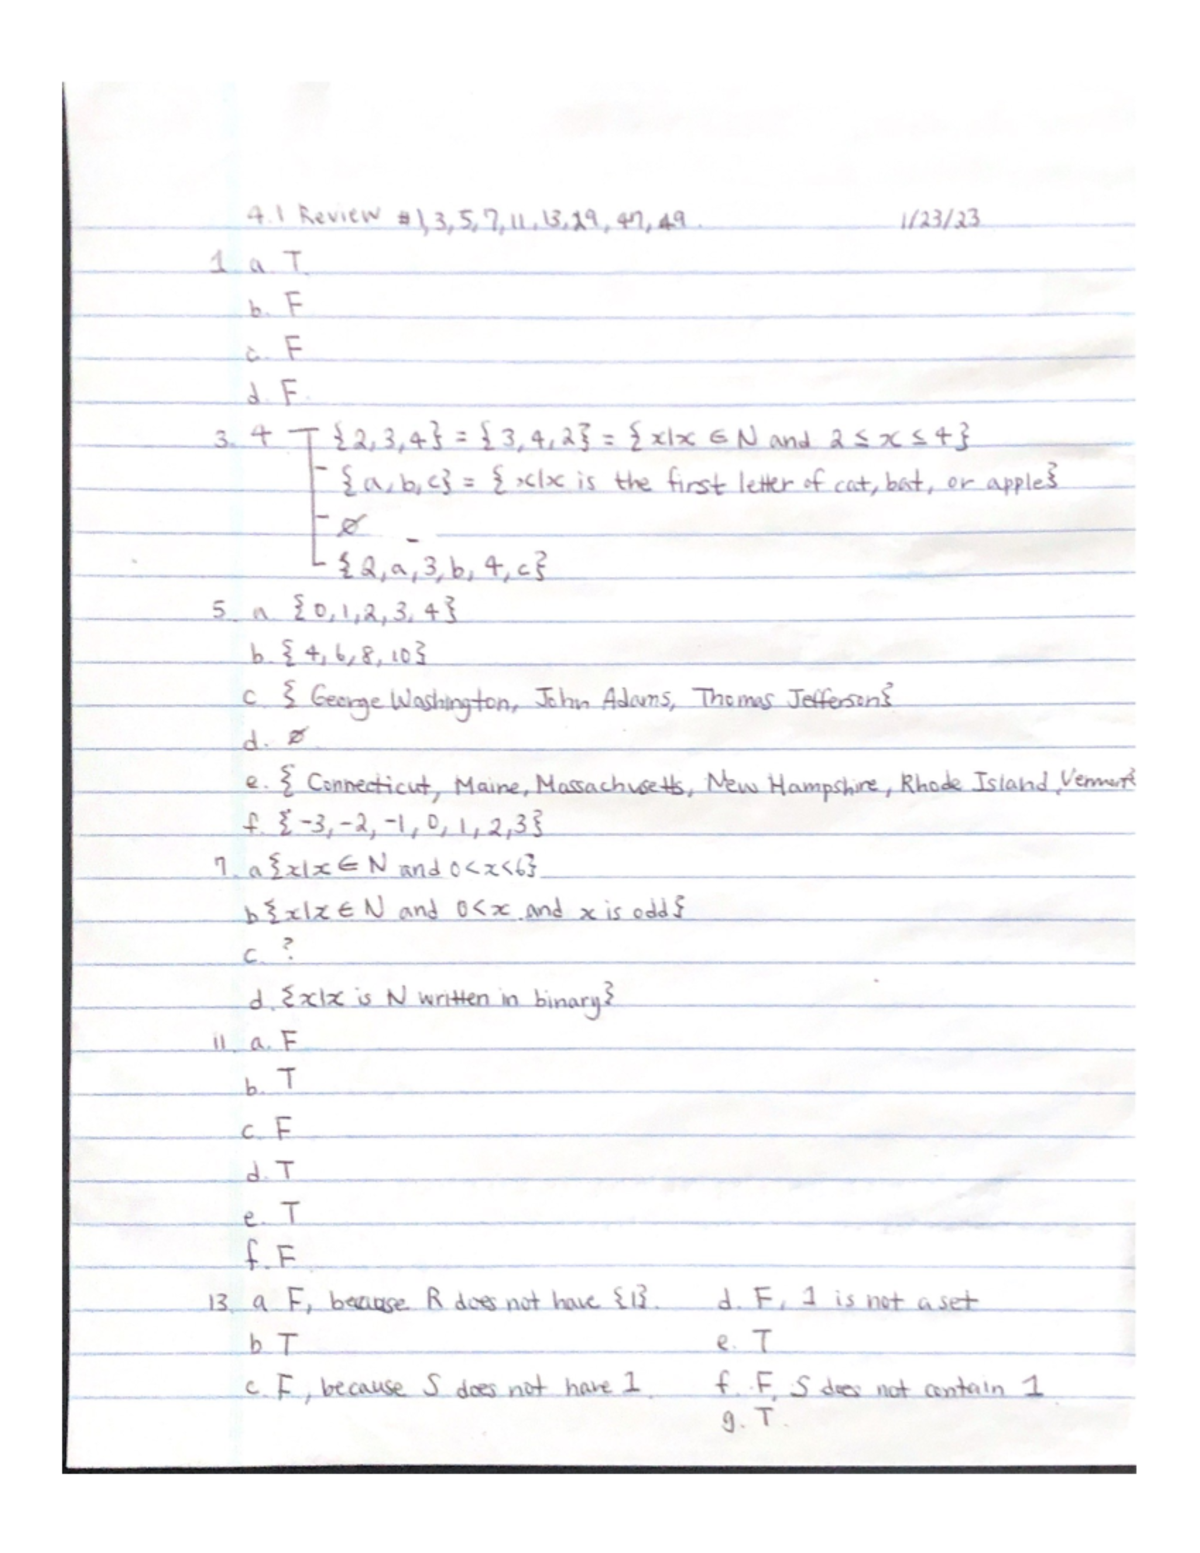 4.1 Review #1,3,5,7,11,13,29,47,49. 1/23/23
1 a. T
b. F
c. F
d. F.
3. 4 {2,3,4} = {3,4,2} = {x|x ∈ N and 2 ≤ x ≤ 4}
{a,b,c} = {x|x is the first letter of cat, bat, or apple}
∅
{2,a,3,b,4,c}
5. a {0,1,2,3,4}
b. {4,6,8,10}
c. {George Washington, John Adams, Thomas Jefferson}
d. ∅
e. {Connecticut, Maine, Massachusetts, New Hampshire, Rhode Island, Vermont}
f. {-3,-2,-1,0,1,2,3}
7. a {x|x ∈ N and 0<x<6}
b {x|x ∈ N and 0<x and x is odd}
c. ?
d. {x|x is N written in binary}
11. a. F
b. T
c. F
d. T
e. T
f. F
13. a F, because R does not have {1}. d. F, 1 is not a set
b T e. T
c. F, because S does not have 1 f. F, S does not contain 1
g. T.